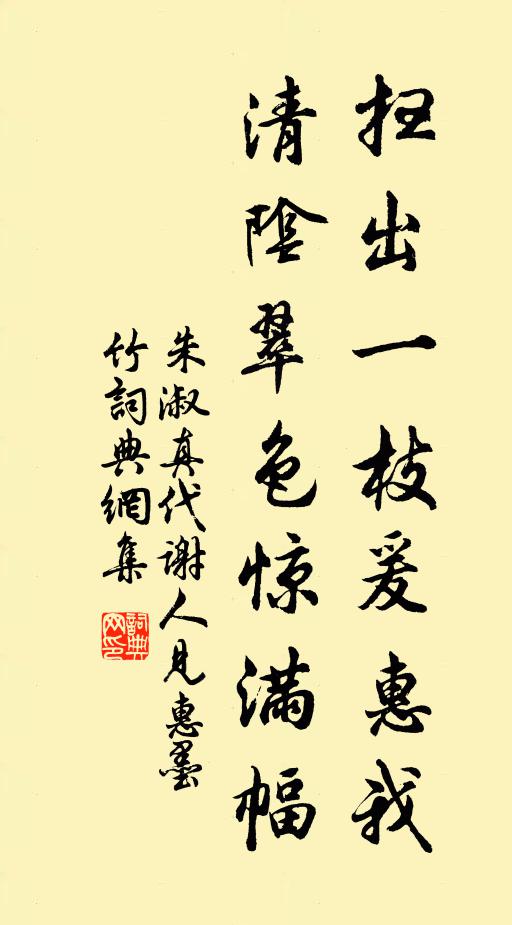 扫出一枝爰惠我
清陰翠色惊满幅
朱淑真代谢人見惠墨
竹詞典網集
詞典
网印